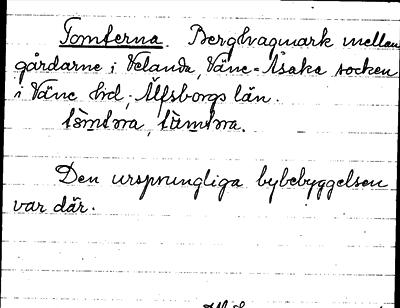 Tomterna. Berghagmark mellan
gårdarne i Velanda, Väne-Åsaka socken
i Väne hd, Älfsborgs län.
Den ursprungliga bybebyggelsen
var där.